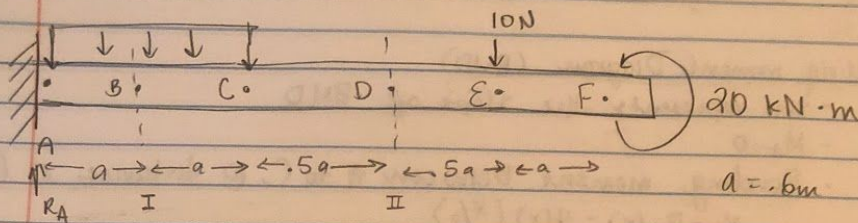 10N
B C D E F 20 kN·m
A
a a .5a .5a a a = .6m
R_A I II